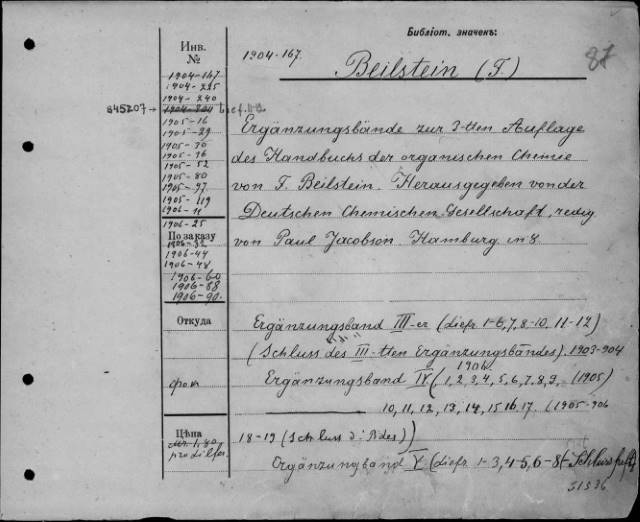 Библіот. значекъ:
87
Инв.
№
1904-167.
Beilstein (F.)
1904-167
1904-225
1904-240
845207→
1905-16
1905-29
1905-70
1905-76
1905-52
1905-80
1905-97
1905-119
1906-11
1906-25
По заказу
1906-32
1906-44
1906-48
1906-60
1906-88
1906-90.
Ergänzungsbände zur 3-tten Auflage
des Handbuchs der organischen Chemie
von F. Beilstein. Herausgegeben von der
Deutschen Chemischen Gesellschaft, redig
von Paul Jacobson. Hamburg in 8
Откуда
фон
Ergänzungsband III-er (Liefr. 1-6, 7, 8-10, 11-12)
(Schluss des III-tten Ergänzungsbandes). 1903-904
1904
Ergänzungsband IV (1, 2, 3, 4, 5, 6, 7, 8, 9, (1905)
10, 11, 12, 13, 14, 15 16. 17. (1905-906
Цѣна
pro dilfer.
18-19 (Schluss d. Bdes))
Ergänzungband V (Liefr. 1-3, 4-5, 6-8
51536